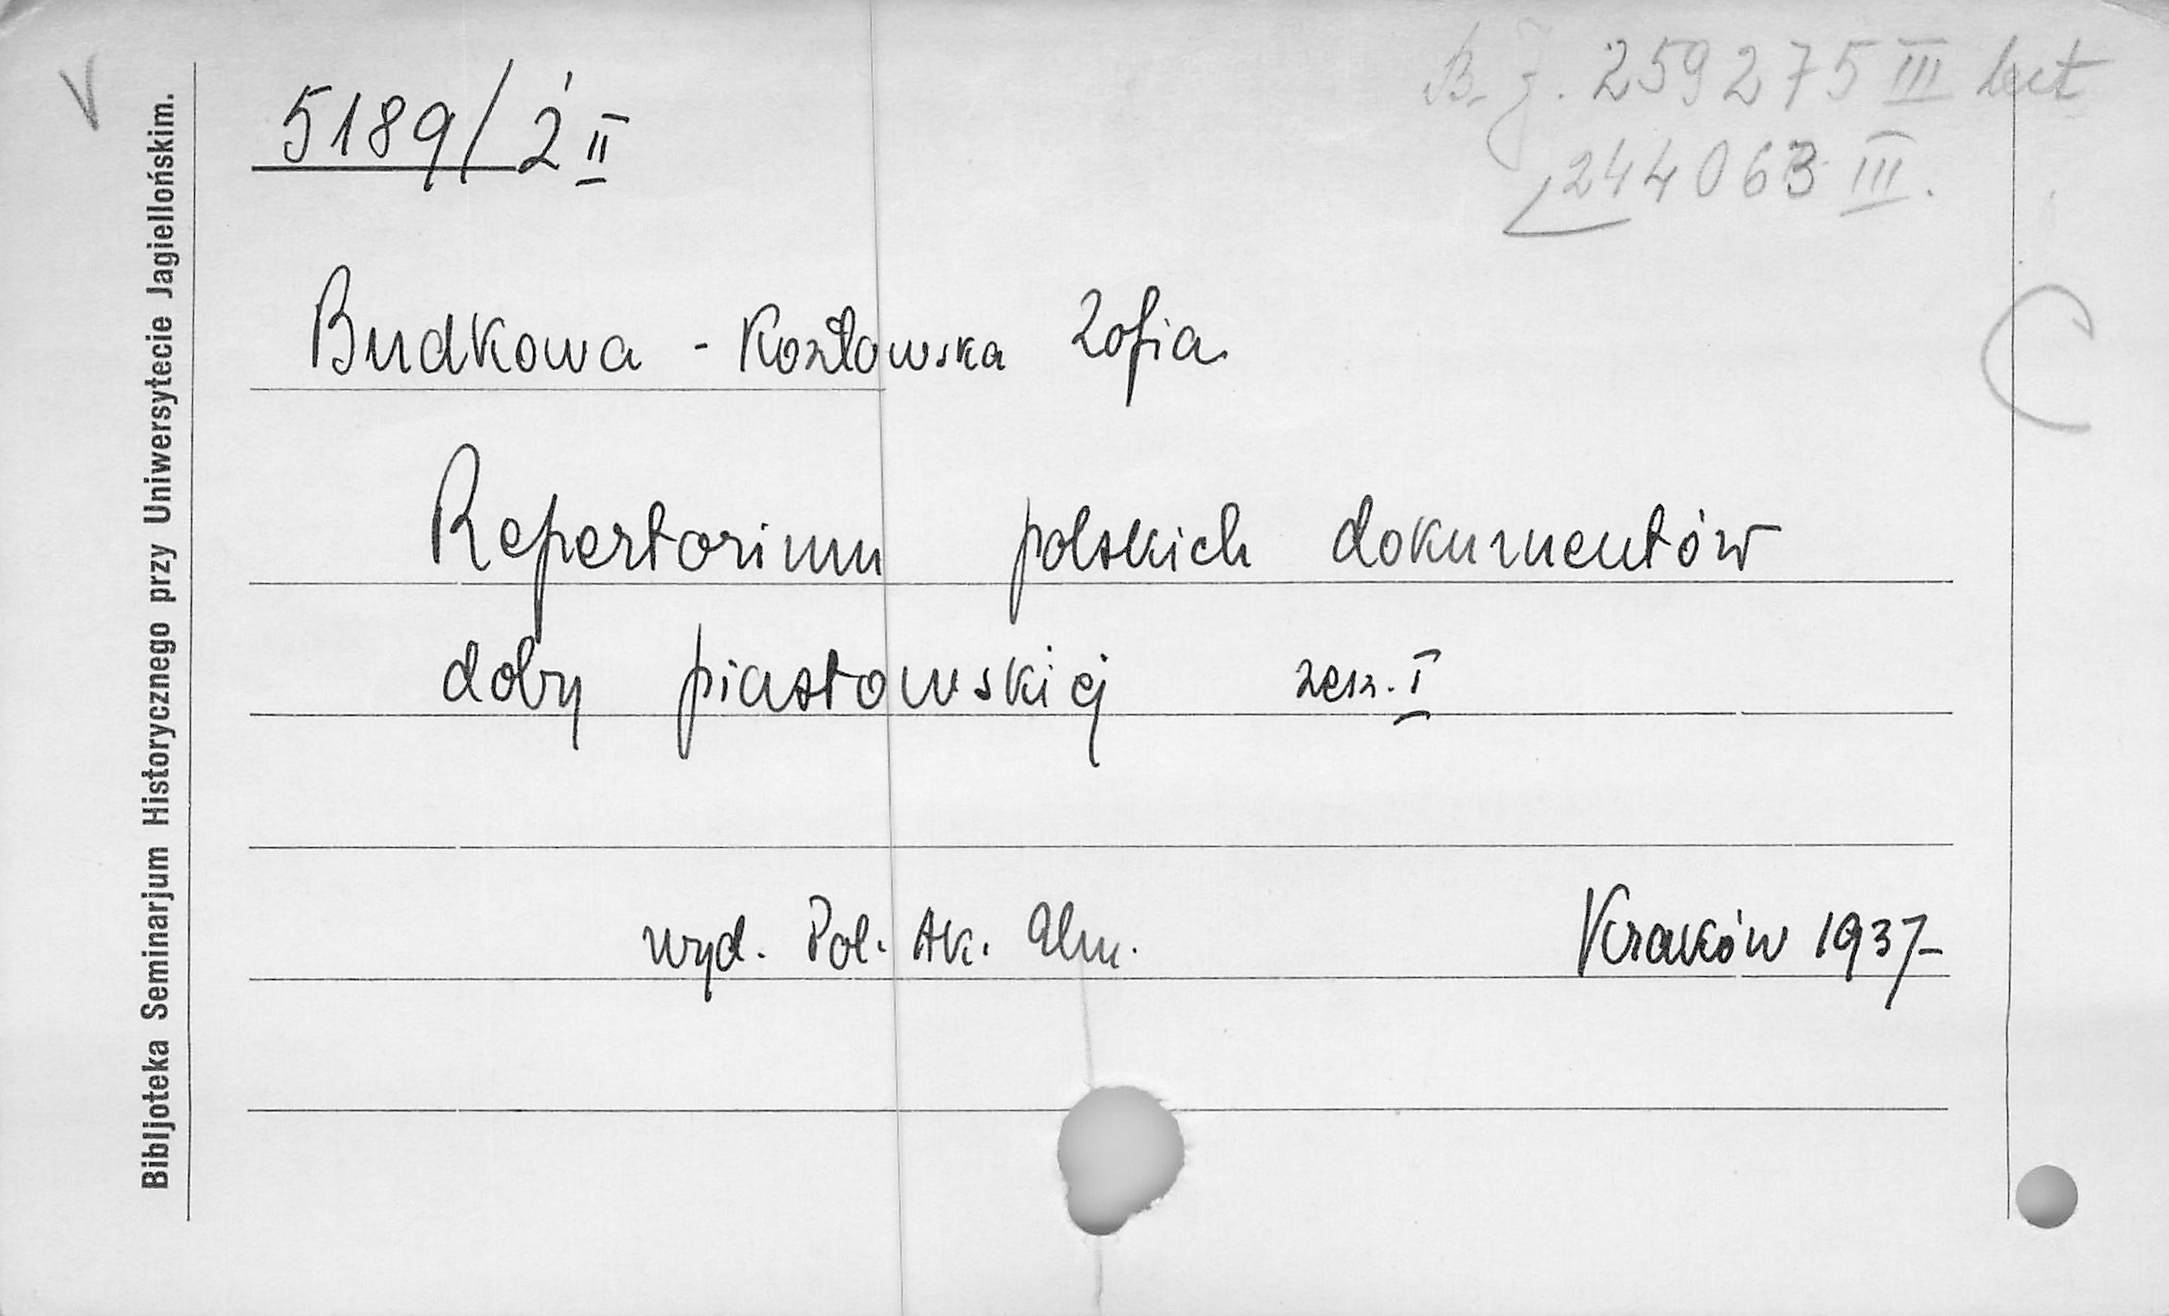 V
B. J. 259275 III lect
244063 III.
5189/2 II
Budkowa - Kozłowska Zofia
Repertorium polskich dokumentów
doby piastowskiej zesz. I
wyd. Pol. Ak. Um. Kraków 1937-
Bibljoteka Seminarjum Historycznego przy Uniwersytecie Jagiellońskim.